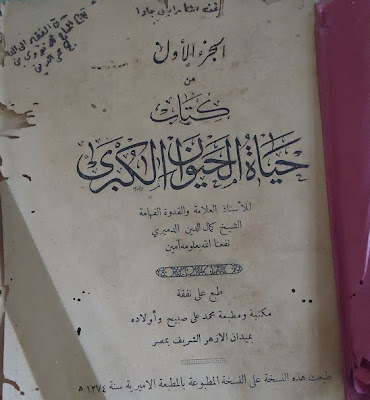 الجزء الأول
من
كتاب
حياة الحيوان الكبرى
للأستاذ العلامة والقدوة الفهامة
الشيخ كمال الدين الدميري
نفعنا الله بعلومه آمين
طبع على نفقة
مكتبة ومطبعة محمد على صبيح وأولاده
بميدان الازهر الشريف بمصر
طبعت هذه النسخة على النسخة المطبوعة بالمطبعة الاميرية سنة ١٢٧٤ ه